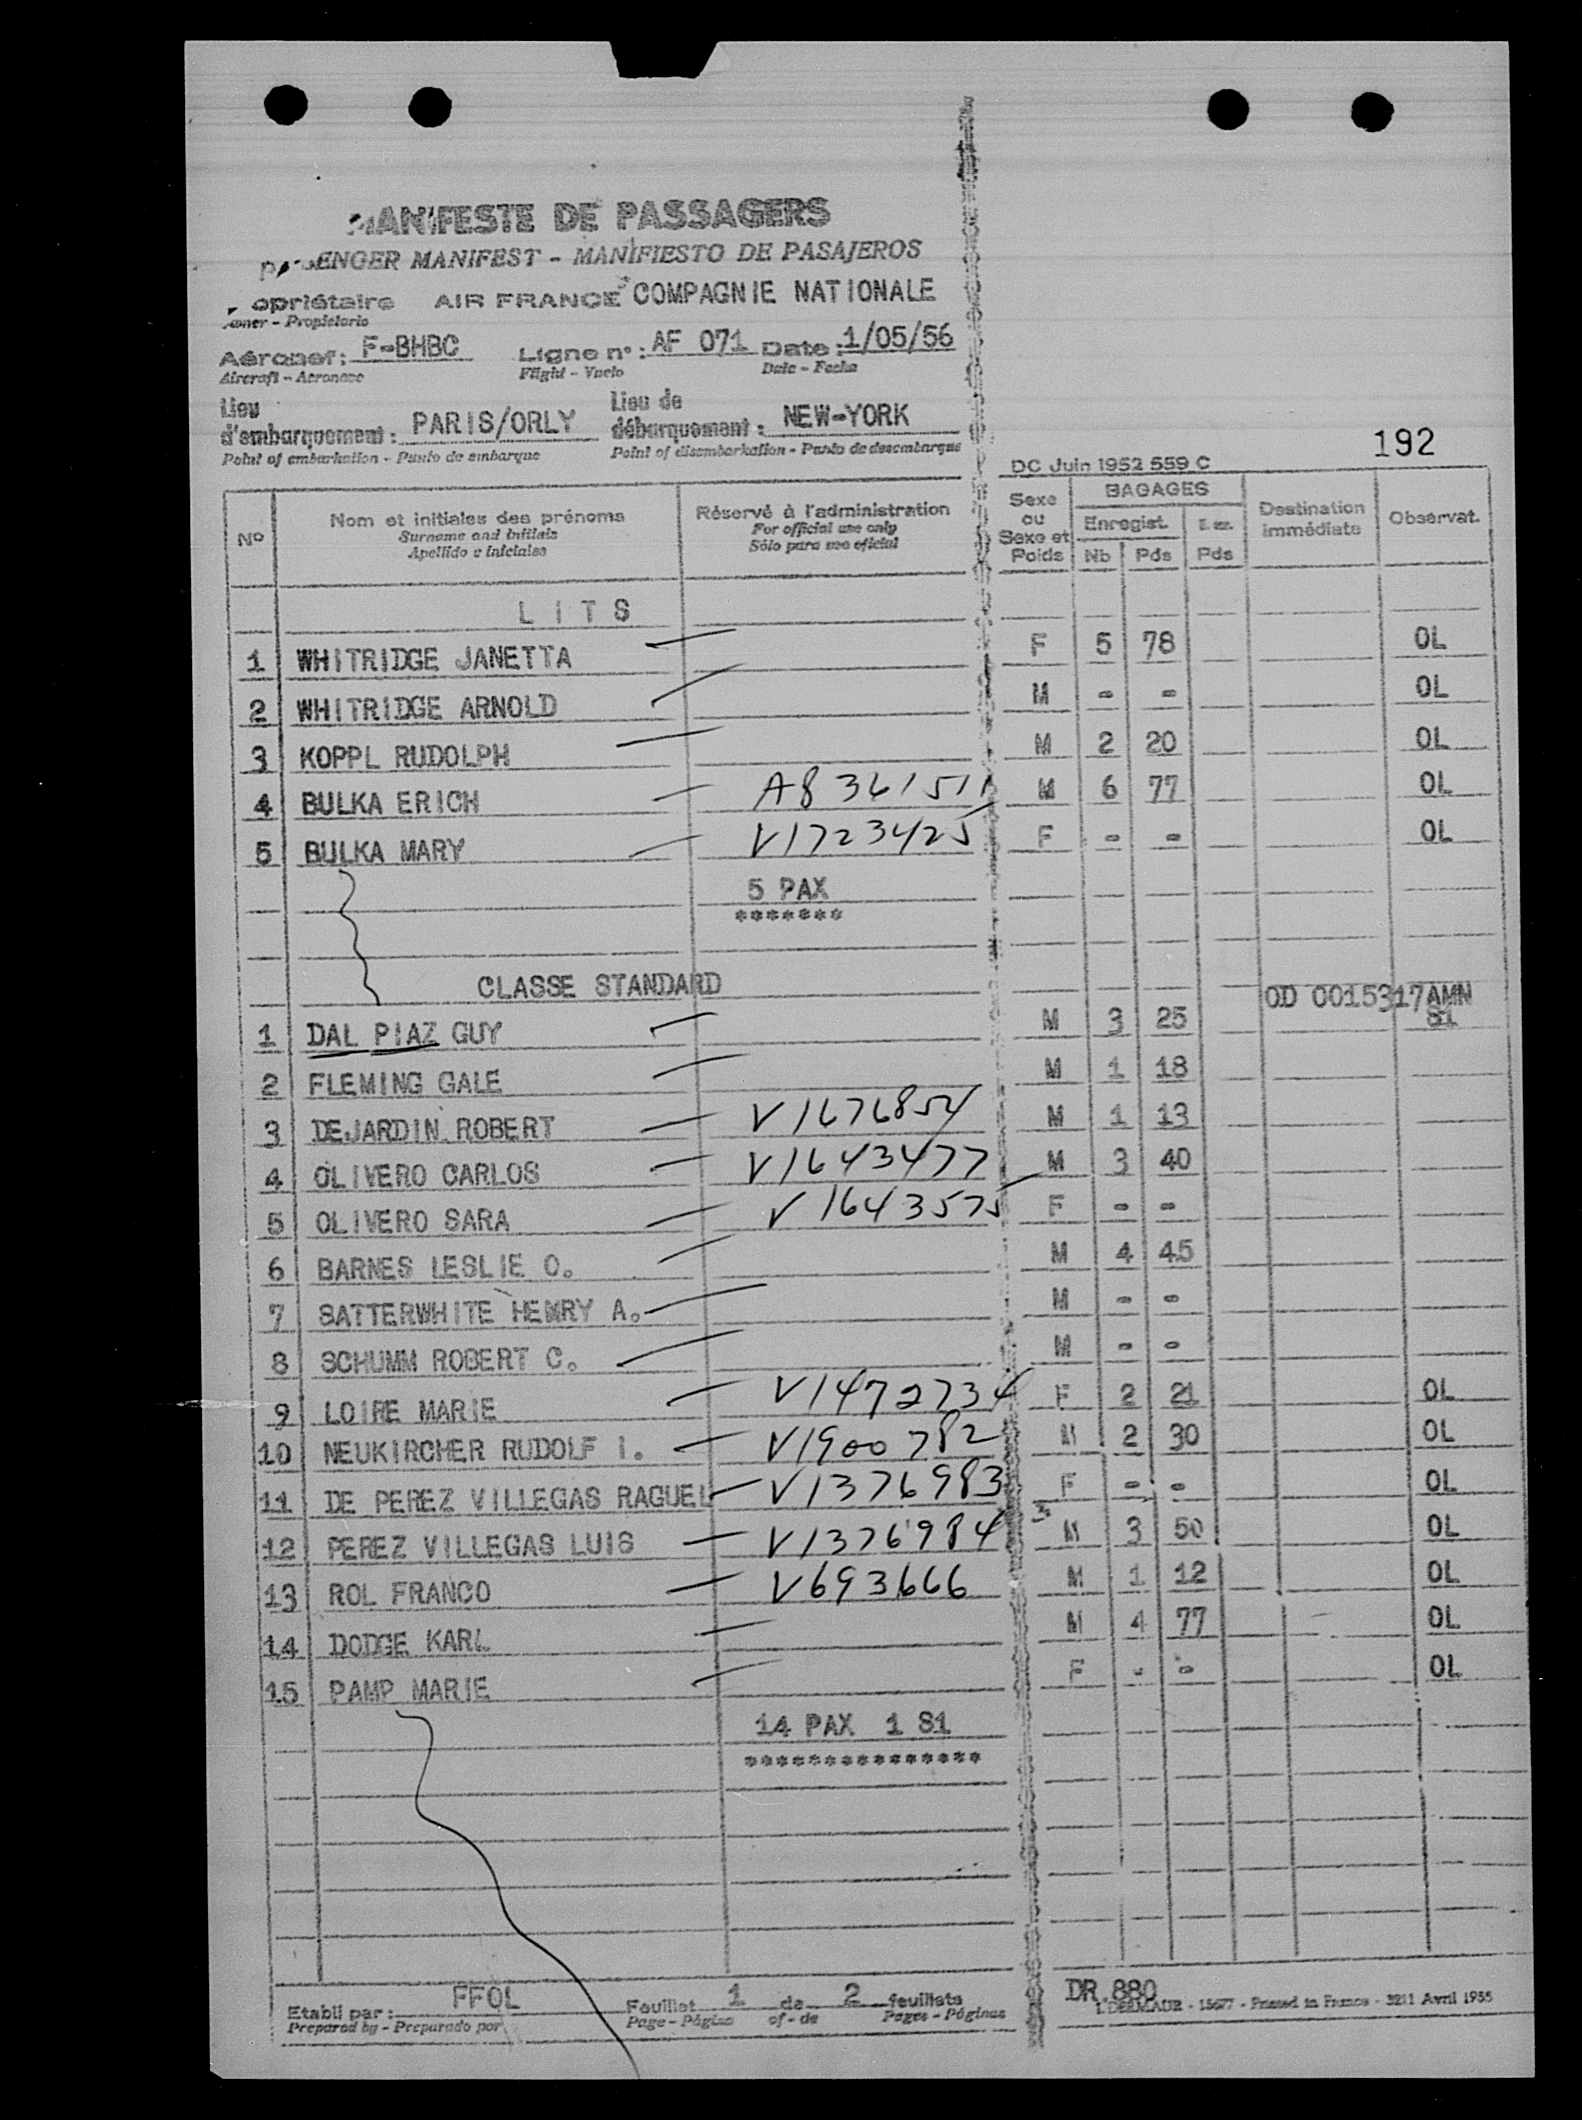 MANIFESTE DE PASSAGERS
PASSENGER MANIFEST - MANIFIESTO DE PASAJEROS
opriétaire AIR FRANCE COMPAGNIE NATIONALE
Owner - Propietario
Aéronef: F-BHBC Ligne n°: AF 071 Date: 1/05/56
Aircraft - Aeronave Flight - Vuelo Date - Fecha
Lieu d'embarquement: PARIS/ORLY Lieu de débarquement: NEW-YORK
Point of embarkation - Punto de embarque Point of disembarkation - Punto de desembarque
192
DC Juin 1952 559 C
No Nom et initiales des prénoms Réservé à l'administration Sexe ou Sexe et Poids BAGAGES Destination immédiate Observat.
Surname and initials For official use only Enregist.
Apellido e iniciales Sólo para uso oficial Nb Pds Pds
LITS
1 WHITRIDGE JANETTA F 5 78 OL
2 WHITRIDGE ARNOLD M - - OL
3 KOPPL RUDOLPH M 2 20 OL
4 BULKA ERICH A8361511 M 6 77 OL
5 BULKA MARY V1723425 F - - OL
5 PAX
*******
CLASSE STANDARD
OD 0015317AMN
1 DAL PIAZ GUY M 3 25 S1
2 FLEMING GALE M 1 18
3 DEJARDIN ROBERT V1676854 M 1 13
4 OLIVERO CARLOS V1643477 M 3 40
5 OLIVERO SARA V1643575 F - -
6 BARNES LESLIE O. M 4 45
7 SATTERWHITE HENRY A. M - -
8 SCHUMM ROBERT C. M - -
9 LOIRE MARIE V1472734 F 2 21 OL
10 NEUKIRCHER RUDOLF I. V1900782 M 2 30 OL
11 DE PEREZ VILLEGAS RAGUEL V1376983 F - - OL
12 PEREZ VILLEGAS LUIS V1376984 M 3 50 OL
13 ROL FRANCO V693666 M 1 12 OL
14 DODGE KARL M 4 77 OL
15 PAMP MARIE F - - OL
14 PAX 1 S1
***************
Etabli par: FFOL Feuillet 1 de 2 feuillets DR.880
Prepared by - Preparado por Page - Página of - de Pages - Páginas 15677 - Printed in France - 3211 Avril 1955